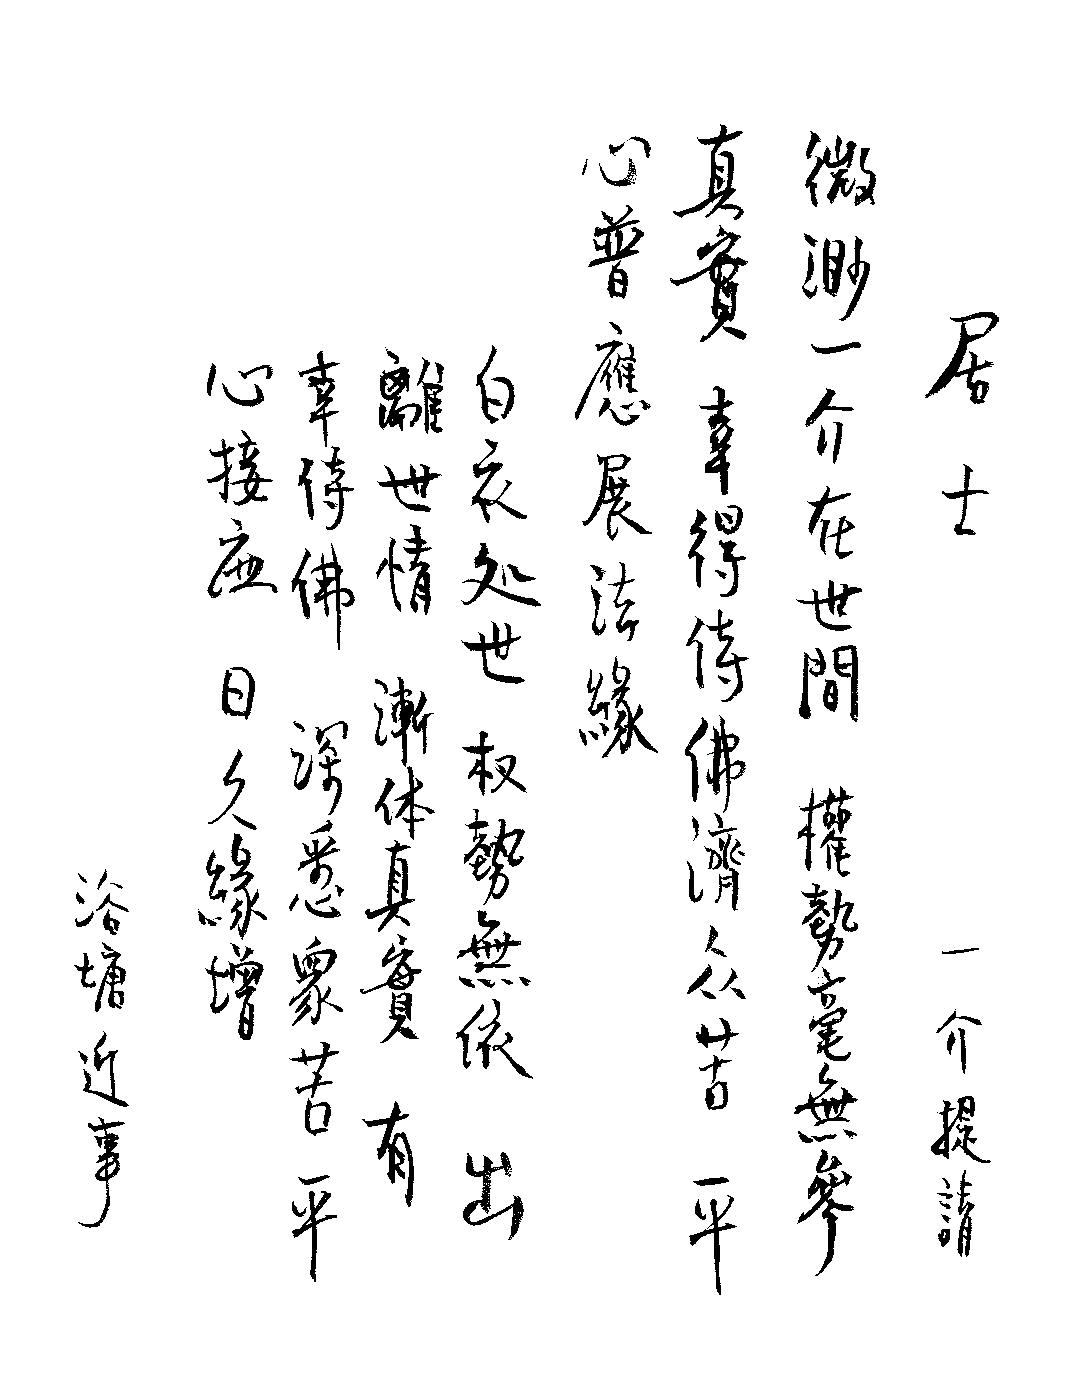 居士 一介提請
微渺一介在世間 權勢毫無參
真實 幸得侍佛濟众苦 平
心普應展法緣
白衣处世 权勢無依 出
離世情 漸体真實 有
幸侍佛 深悉眾苦 平
心接应 日久緣增
浴塘近事